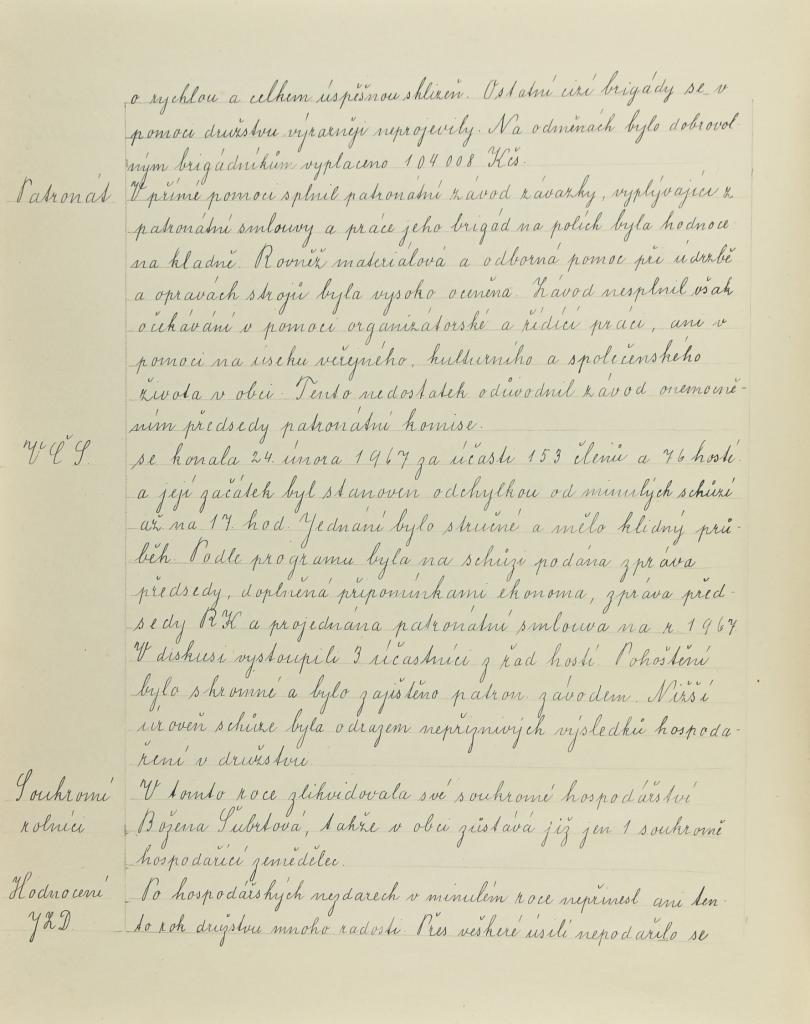 o rychlou a celkem úspěšnou sklizeň. Ostatní cizí brigády se v
pomoci družstvu výrazněji neprojevily. Na odměnách bylo dobrovol-
ným brigádníkům vyplaceno 104 008 Kčs.
Patronát
V přímé pomoci splnil patronátní závod závazky, vyplývající z
patronátní smlouvy a práce jeho brigád na polích byla hodnoce-
na kladně. Rovněž materiálová a odborná pomoc při údržbě
a opravách strojů byla vysoko oceněna. Závod nesplnil však
očekávání v pomoci organizátorské a řídící práci, ani v
pomoci na úseku veřejného, kulturního a společenského
života v obci. Tento nedostatek odůvodnil závod onemocně-
ním předsedy patronátní komise.
VČS
se konala 24. února 1967 za účasti 153 členů a 76 hostí
a její začátek byl stanoven odchylkou od minulých schůzí
až na 17 hod. Jednání bylo stručné a mělo klidný prů-
běh. Podle programu byla na schůzi podána zpráva
předsedy, doplněná připomínkami ekonoma, zpráva před-
sedy RK a projednána patronátní smlouva na r. 1967
V diskusi vystoupili 3 účastníci z řad hostí. Pohoštění
bylo skromné a bylo zajištěno patron. závodem. Nižší
úroveň schůze byla odrazem nepříznivých výsledků hospoda-
ření v družstvu.
Soukromí
rolníci
V tomto roce zlikvidovala své soukromé hospodářství
Božena Šubrtová, takže v obci zůstává již jen 1 soukromě
hospodařící zemědělec.
Hodnocení
JZD
Po hospodářských nezdarech v minulém roce nepřinesl ani ten-
to rok družstvu mnoho radosti. Přes veškeré úsilí nepodařilo se